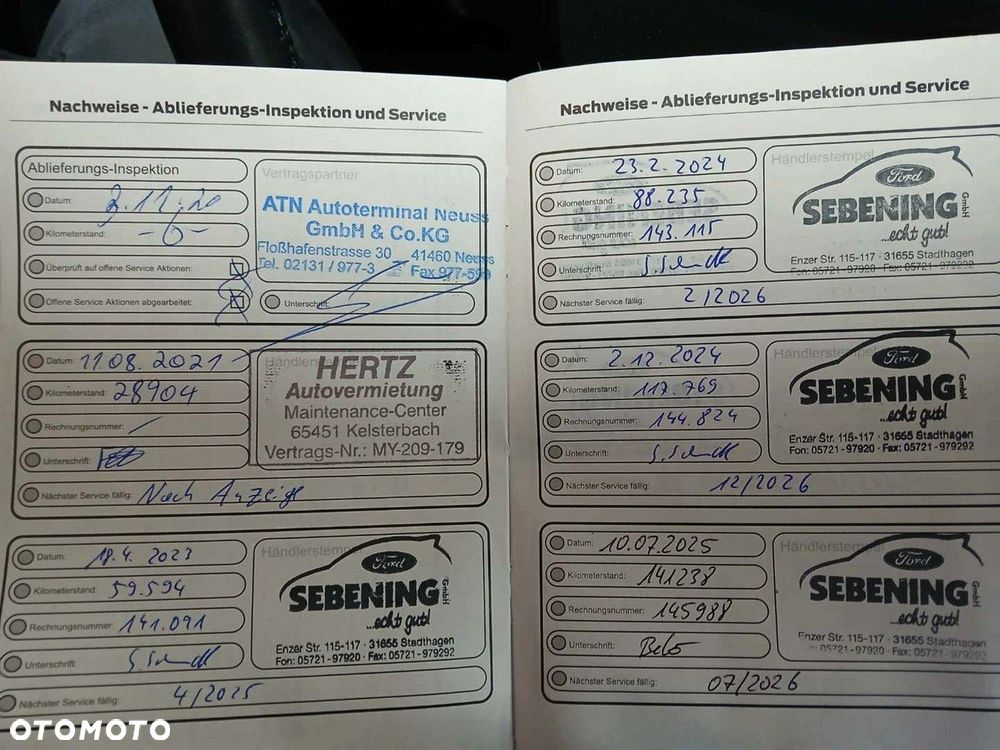 Nachweise - Ablieferungs-Inspektion und Service
Ablieferungs-Inspektion
Datum: 3.11.20
Kilometerstand: -0-
Überprüft auf offene Service Aktionen:
Offene Service Aktionen abgearbeitet:
Vertragspartner
ATN Autoterminal Neuss
GmbH & Co.KG
Floßhafenstrasse 30 41460 Neuss
Tel. 02131 / 977-3 Fax 977-599
Unterschrift:
Datum: 11.08.2021
Kilometerstand: 28904
Rechnungsnummer: -
Unterschrift:
Nächster Service fällig: Nach Anzeige
HERTZ
Autovermietung
Maintenance-Center
65451 Kelsterbach
Vertrags-Nr.: MY-209-179
Datum: 18.4. 2023
Kilometerstand: 59.594
Rechnungsnummer: 141.091
Unterschrift:
Nächster Service fällig: 4/2025
Händlerstempel
Ford
SEBENING GmbH
...echt gut!
Enzer Str. 115-117 · 31655 Stadthagen
Fon: 05721-97920 · Fax: 05721-979292
Nachweise - Ablieferungs-Inspektion und Service
Datum: 23.2.2024
Kilometerstand: 88.235
Rechnungsnummer: 143.115
Unterschrift:
Nächster Service fällig: 2/2026
Händlerstempel
Ford
SEBENING GmbH
...echt gut!
Enzer Str. 115-117 · 31655 Stadthagen
Fon: 05721-97920 · Fax: 05721-979292
Datum: 2.12.2024
Kilometerstand: 117.769
Rechnungsnummer: 144.824
Unterschrift:
Nächster Service fällig: 12/2026
Händlerstempel
Ford
SEBENING GmbH
...echt gut!
Enzer Str. 115-117 · 31655 Stadthagen
Fon: 05721-97920 · Fax: 05721-979292
Datum: 10.07.2025
Kilometerstand: 141238
Rechnungsnummer: 145988
Unterschrift:
Nächster Service fällig: 07/2026
Händlerstempel
Ford
SEBENING GmbH
...echt gut!
Enzer Str. 115-117 · 31655 Stadthagen
05721-97920 · Fax: 05721-979292
OTOMOTO